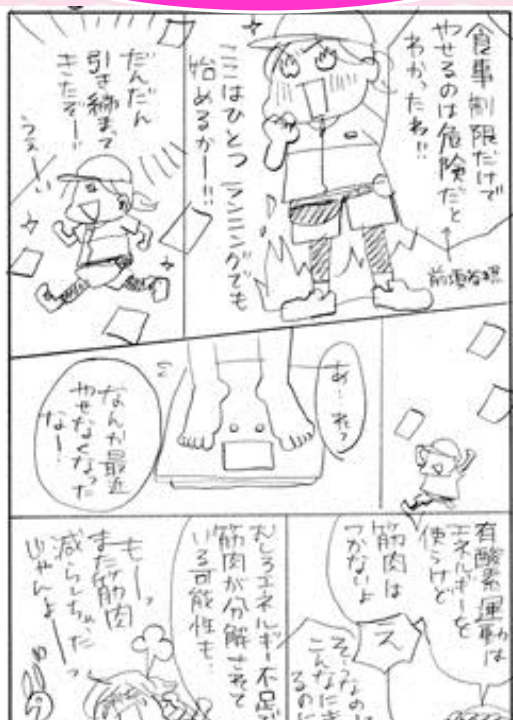 食事制限だけで
やせるのは危険だと
わかったわ!!
前頁参照
ここはひとつランニングでも
始めるかー!!
だんだん
引き締まって
きたぞー!!
うぇーい
あ…れっ
なんか最近
やせなくなった
なー…
有酸素運動は
エネルギーを
使うけど
筋肉は
つかないよ
え
そうなの
こんなに
るのに
むしろエネルギー不足で
筋肉が分解されて
いる可能性も…
もーっ
また筋肉
減らしちゃった
じゃんよーっ